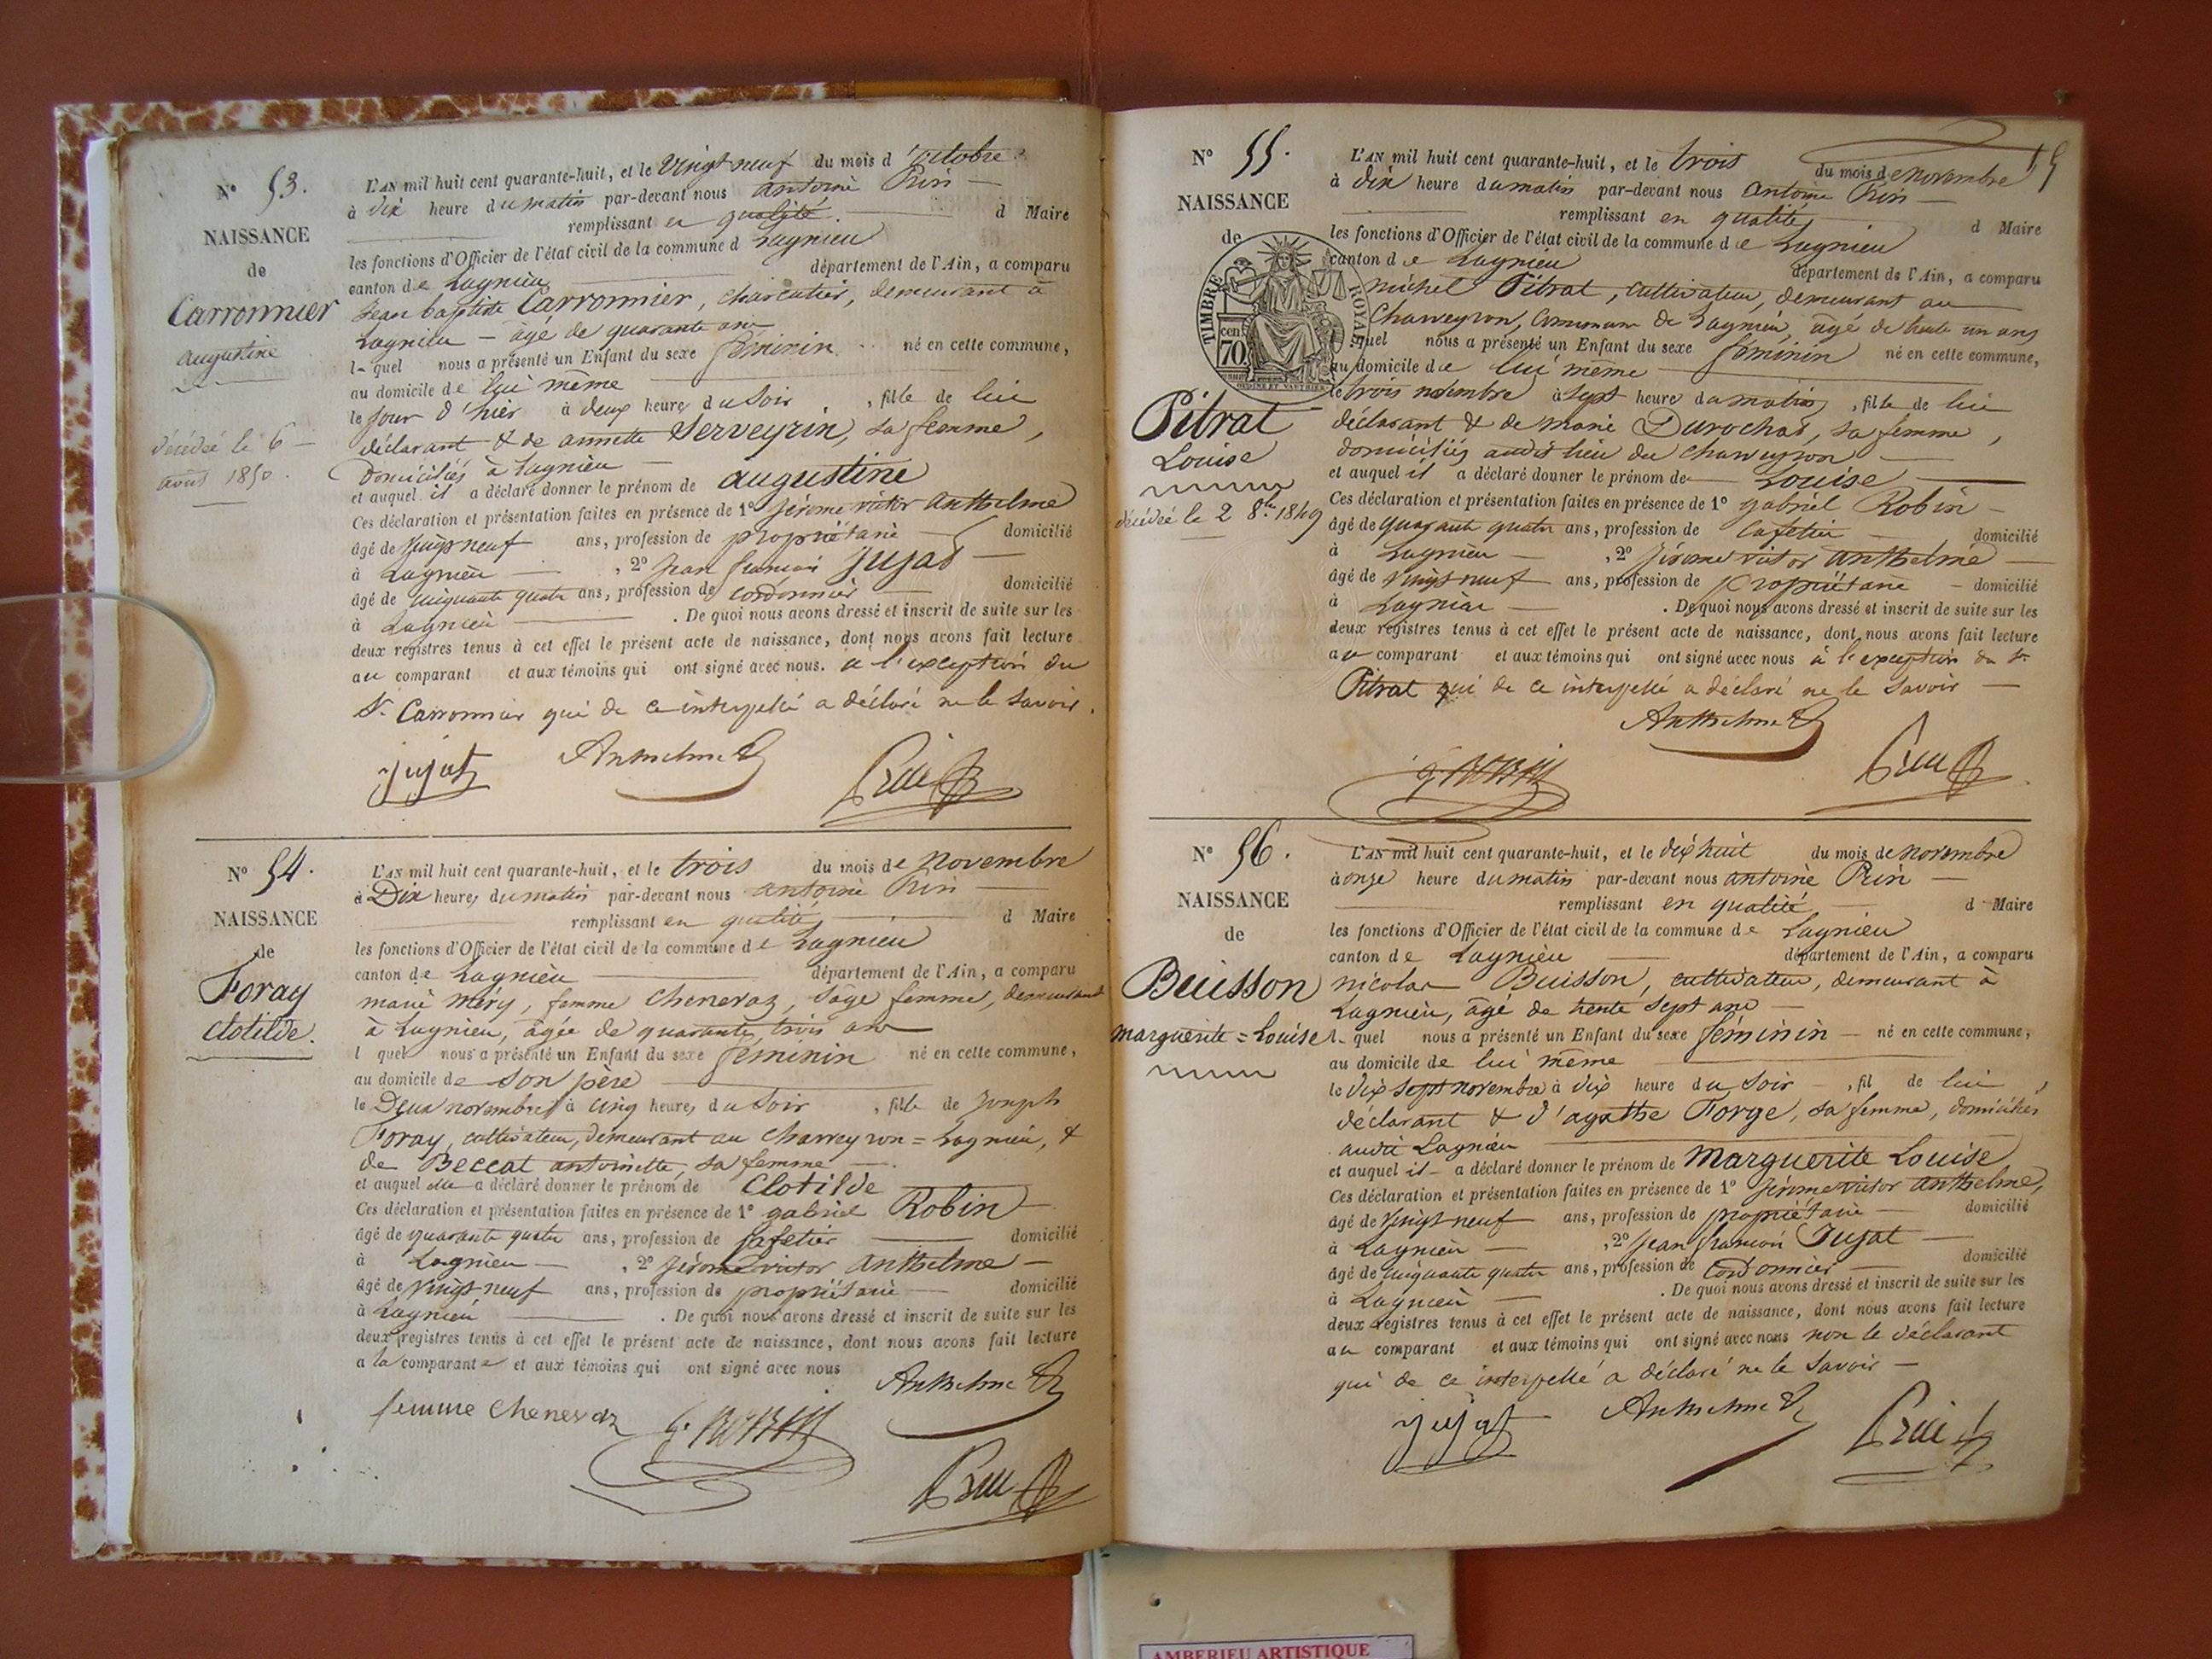 N° 53.
NAISSANCE
de
Carronnier
augustine
décédée le 6
août 1850.
L'AN mil huit cent quarante-huit, et le vingt neuf du mois d'octobre
à dix heure du matin par-devant nous antoine Prin
remplissant en qualité d Maire
les fonctions d'Officier de l'état civil de la commune d Lagnieu
canton de Lagnieu département de l'Ain, a comparu
Jean baptiste Carronnier, charcutier, demeurant à
Lagnieu - âgé de quarante ans
l- quel nous a présenté un Enfant du sexe féminin né en cette commune,
au domicile de lui même
le jour d'hier à deux heures du soir, fille de lui
déclarant & de annette Serveyrin, sa femme,
domiciliés à Lagnieu
et auquel il a déclaré donner le prénom de augustine
Ces déclaration et présentation faites en présence de 1° Jérome victor anthelme
âgé de vingt neuf ans, profession de propriétaire domicilié
à Lagnieu, 2° Jean francois Jujat
âgé de cinquante quatre ans, profession de cordonnier domicilié
à Lagnieu. De quoi nous avons dressé et inscrit de suite sur les
deux registres tenus à cet effet le présent acte de naissance, dont nous avons fait lecture
au comparant et aux témoins qui ont signé avec nous. à l'exception du
Sr. Carronnier qui de ce interpellé a déclaré ne le savoir.
jujat Anthelme
N° 54.
NAISSANCE
de
Foray
clotilde.
L'AN mil huit cent quarante-huit, et le trois du mois de novembre
à Dix heures du matin par-devant nous antoine Prin
remplissant en qualité d Maire
les fonctions d'Officier de l'état civil de la commune de Lagnieu
canton de Lagnieu département de l'Ain, a comparu
marie méry, femme chenevaz, sage femme, demeurant
à Lagnieu, âgée de quarante trois ans
l quel nous a présenté un Enfant du sexe féminin né en cette commune,
au domicile de son père
le Deux novembre à cinq heures du soir, fille de Joseph
Foray, cultivateur, demeurant au Charveyron = Lagnieu, &
de Beccat antoinette, sa femme
et auquel elle a déclaré donner le prénom de clotilde
Ces déclaration et présentation faites en présence de 1° gabriel Robin
âgé de quarante quatre ans, profession de cafetier domicilié
à Lagnieu, 2° Jérome victor anthelme
âgé de vingt neuf ans, profession de propriétaire domicilié
à Lagnieu. De quoi nous avons dressé et inscrit de suite sur les
deux registres tenus à cet effet le présent acte de naissance, dont nous avons fait lecture
a la comparante et aux témoins qui ont signé avec nous
Anthelme
femme chenevaz g. ROBIN
N° 55.
NAISSANCE
de
TIMBRE ROYAL
cent 70
Pitrat
Louise
décédée le 2 8bre 1849
L'AN mil huit cent quarante-huit, et le trois du mois de novembre
à dix heure du matin par-devant nous antoine Prin
remplissant en qualité d Maire
les fonctions d'Officier de l'état civil de la commune de Lagnieu
canton de Lagnieu département de l'Ain, a comparu
michel Pitrat, cultivateur, demeurant au
Charveyron, commune de Lagnieu, âgé de trente un ans
quel nous a présenté un Enfant du sexe féminin né en cette commune,
au domicile de lui même
le trois novembre à sept heure du matin, fille de lui
déclarant & de marie Durochat, sa femme,
domiciliés audit lieu du charveyron
et auquel il a déclaré donner le prénom de Louise
Ces déclaration et présentation faites en présence de 1° gabriel Robin
âgé de quarante quatre ans, profession de cafetier domicilié
à Lagnieu, 2° Jérome victor anthelme
âgé de vingt neuf ans, profession de propriétaire domicilié
à Lagnieu. De quoi nous avons dressé et inscrit de suite sur les
deux registres tenus à cet effet le présent acte de naissance, dont nous avons fait lecture
au comparant et aux témoins qui ont signé avec nous à l'exception du Sr
Pitrat qui de ce interpellé a déclaré ne le savoir
Anthelme
g. ROBIN
N° 56.
NAISSANCE
de
Buisson
marguerite = Louise
L'AN mil huit cent quarante-huit, et le dix huit du mois de novembre
à onze heure du matin par-devant nous antoine Prin
remplissant en qualité d Maire
les fonctions d'Officier de l'état civil de la commune de Lagnieu
canton de Lagnieu département de l'Ain, a comparu
nicolas Buisson, cultivateur, demeurant à
Lagnieu, âgé de trente sept ans
l- quel nous a présenté un Enfant du sexe féminin né en cette commune,
au domicile de lui même
le dix sept novembre à dix heure du soir, fil de lui
déclarant & d'agathe Forge, sa femme, domiciliés
audit Lagnieu
et auquel il a déclaré donner le prénom de Marguerite Louise
Ces déclaration et présentation faites en présence de 1° Jérome victor anthelme,
âgé de vingt neuf ans, profession de propriétaire domicilié
à Lagnieu, 2° Jean francois Jujat
âgé de cinquante quatre ans, profession de cordonnier domicilié
à Lagnieu. De quoi nous avons dressé et inscrit de suite sur les
deux registres tenus à cet effet le présent acte de naissance, dont nous avons fait lecture
au comparant et aux témoins qui ont signé avec nous non le déclarant
qui de ce interpellé a déclaré ne le savoir
jujat Anthelme
AMBERIEU ARTISTIQUE